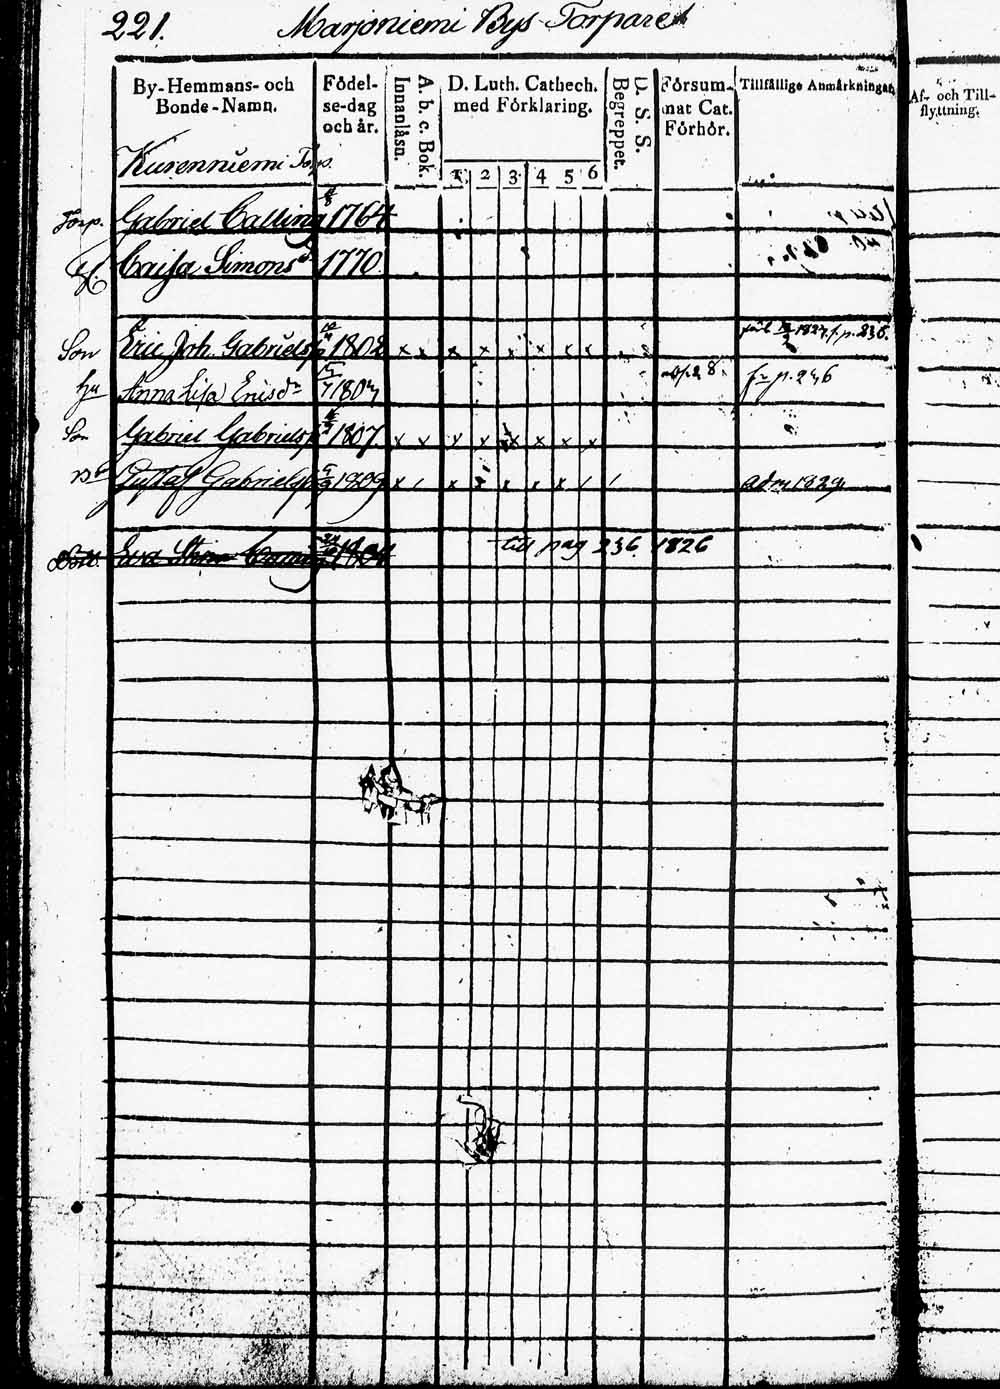 221. Marjoniemi Bys Torpare
By-Hemmans- och Bonde-Namn.
Födel-se-dag och år.
A. b. c. Bok. Innanläsn.
D. Luth. Cathech. med Förklaring.
1. 2 3 4 5 6
D. S. S. Begreppet.
Försum-mat Cat. Förhör.
Tillfällige Anmärkningar.
Af- och Till-flyttning.
Kurenniemi Torp.
Torp. Gabriel Calling 1764
Caisa Simonsd. 1770.
Son Eric Joh. Gabriels 1802 x x x x x x x x 1827 f. p. 236.
hu Anna Lisa Ericsdr 180 8. fr p. 236
Son Gabriel Gabriels 1807 x x x x x x x x
Gustaf Gabriels 1809 x / x x x x x / / adm 1829
Eva 1804 till pag 236 1826